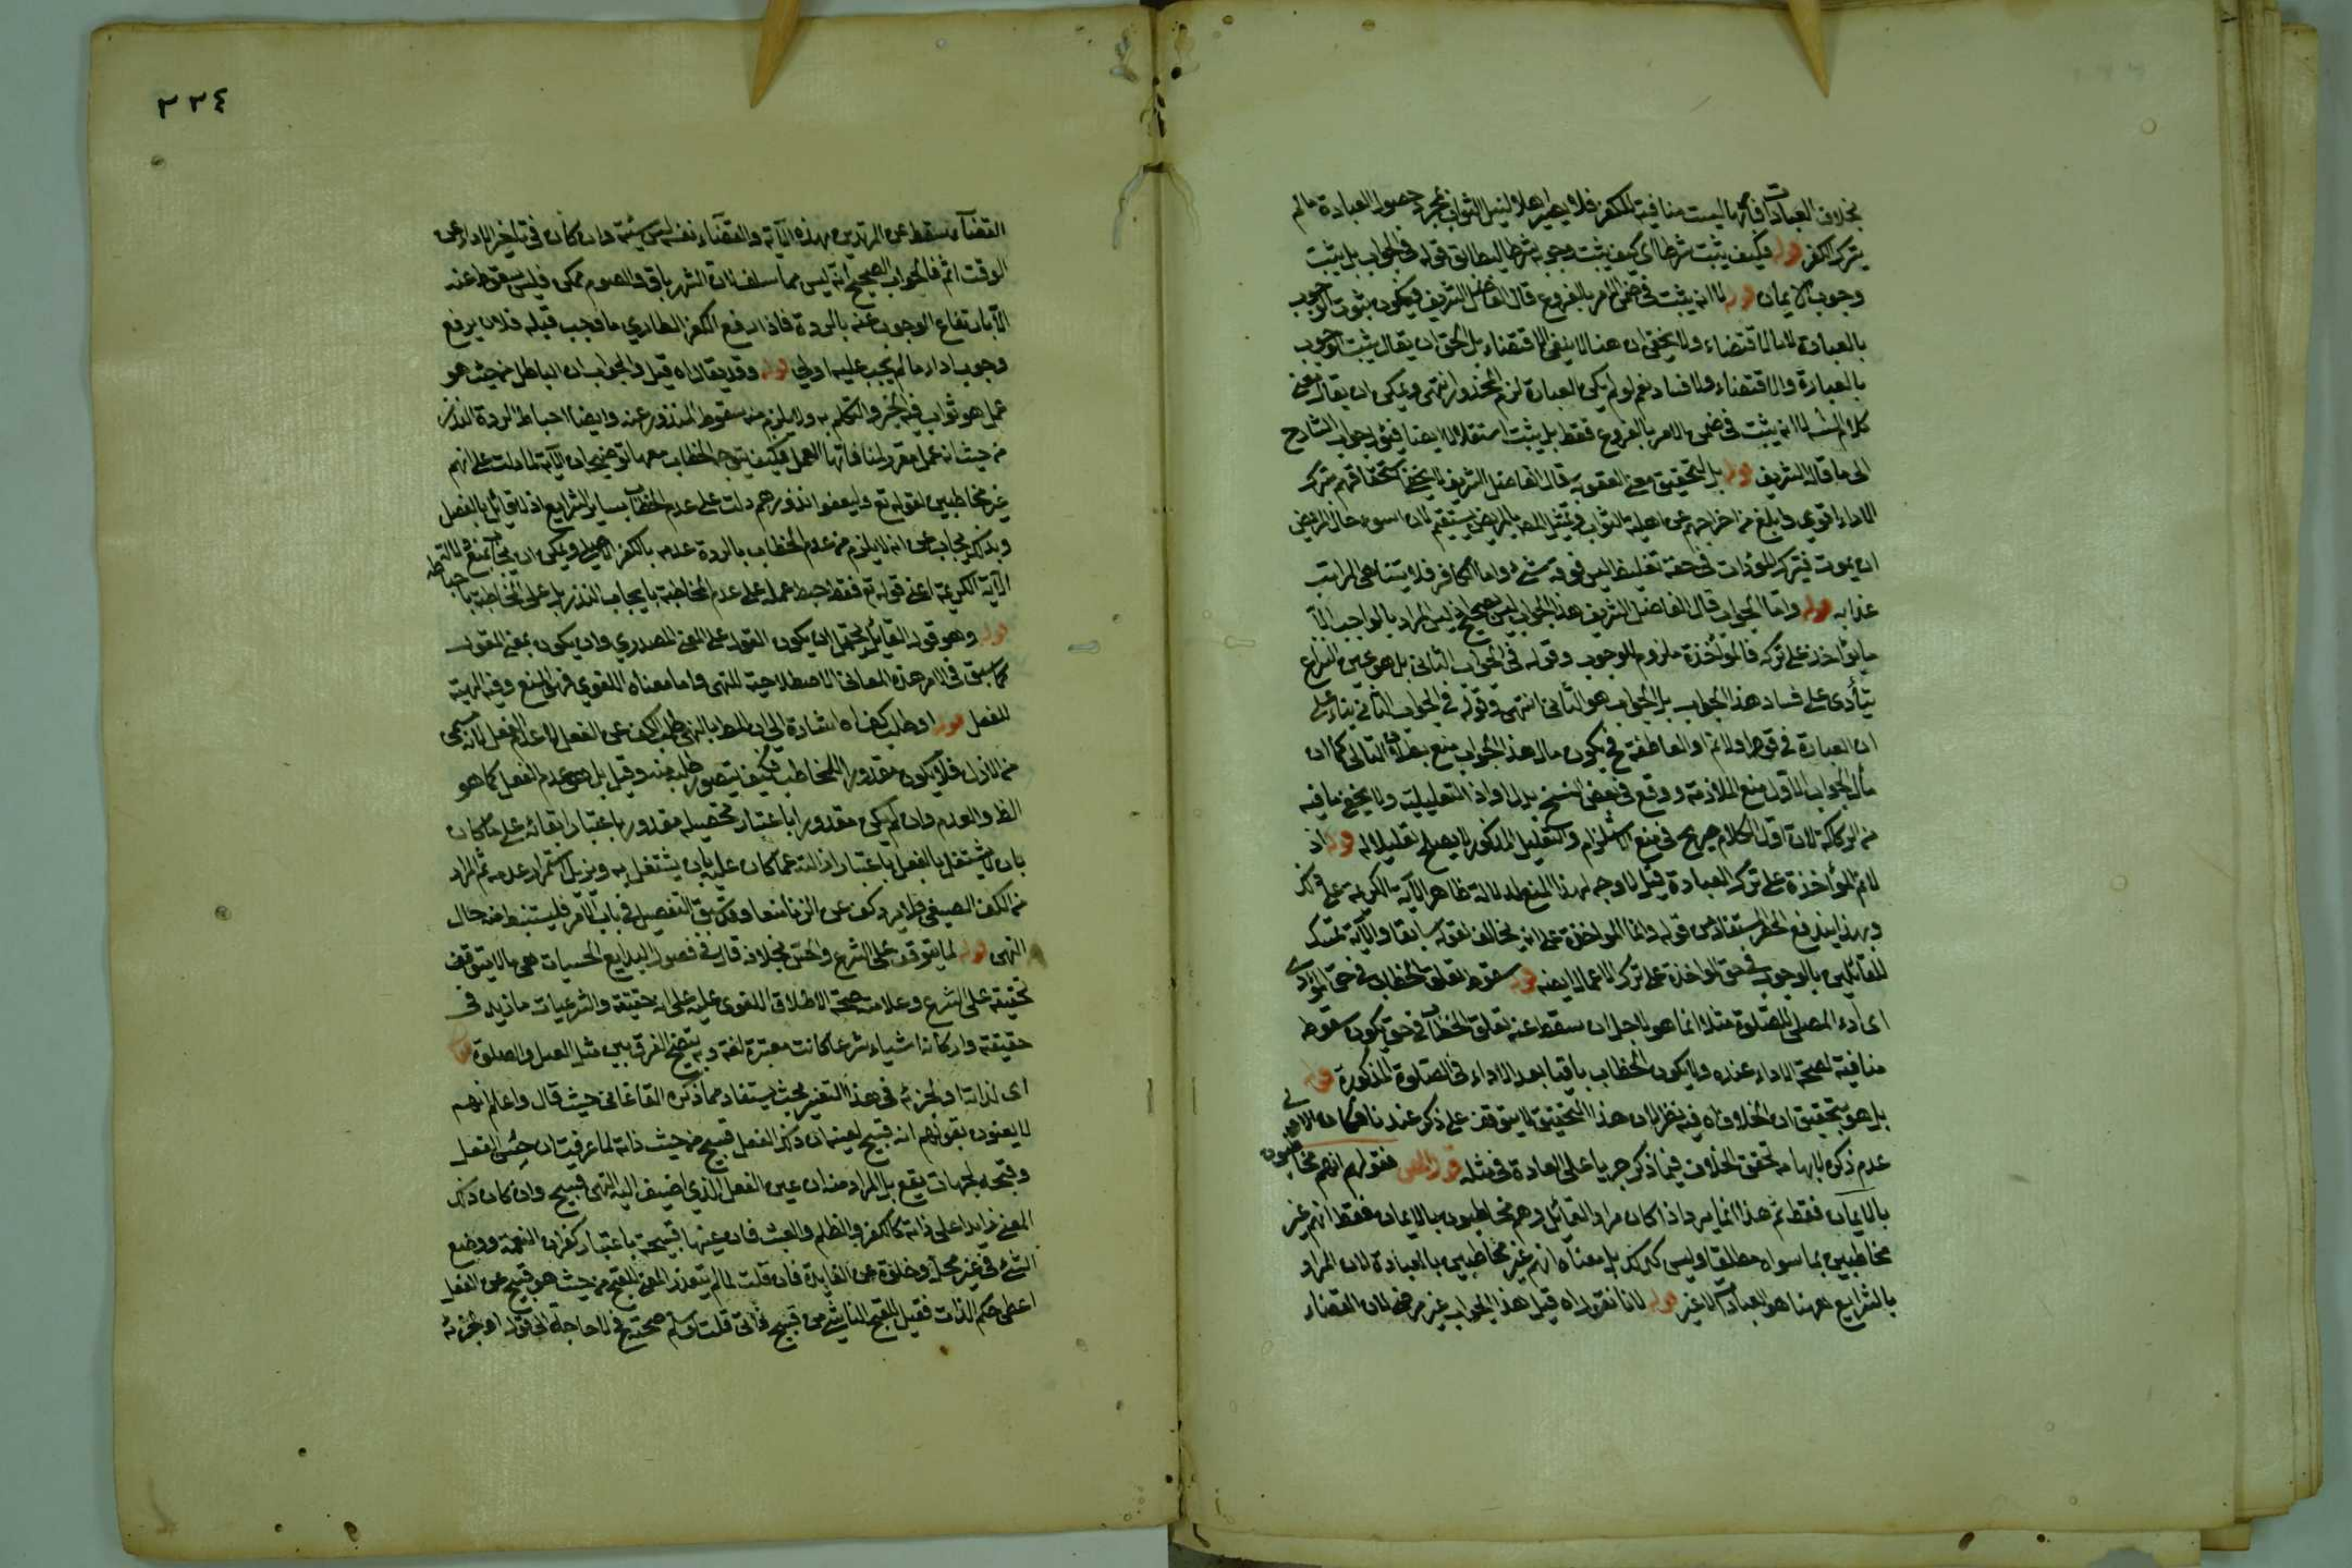 بخلاف العبادات فانها ليست منافية للكفر فلا يصير اهلا لنيل الثواب بمجرد حصول العبادة ما لم
يترك الكفر قوله فكيف يثبت شرطا اى كيف يثبت وجوبه شرطا ليطابق قوله فى الجواب بل يثبت
وجوب الايمان قوله لا انه يثبت فى ضمن الامر بالفروع قال الفاضل الشريف فيكون ثبوت الوجوب
بالعبادة لا بالاقتضاء ولا يخفى ان هذا لا ينفى الاقتضاء بل الحق ان يقال يثبت الوجوب
بالعبارة والاقتضاء ولا فساد نعم لو لم يكن العبارة لزم المحذور انتهى ويمكن ان يقال معنى
كلام لا انه يثبت فى ضمن الامر بالفروع فقط بل يثبت استقلالا ايضا جواب الشارح
الى ما قاله الشريف قوله بل لتحقيق معنى العقوبة قال الفاضل الشريف لا يخفى استحقاقهم بترك
الاداء اقوى وابلغ من اخراجهم عن اهلية الثواب وتمثيل المص بالمريض يستقيم لان اسوء حال المريض
ان يموت فيترك فى حقه تغليظ ليس فوقه شىء واما الكافر فلا يتناهى مراتب
عذابه قوله واما الجواب قال الفاضل الشريف هذا الجواب ليس بصحيح اذ ليس المراد بالواجب الا
ما يؤاخذ على تركه فالمؤاخذة ملزوم الوجوب وقوله فى الجواب الثانى بل هو عين النزاع
ينادى على فساد هذا الجواب بل الجواب هو الثانى انتهى وقوله فى الجواب الثانى بناء على
ان العبارة فى قوله ولانم او العاطفة فيكون مآل هذا الجواب منع بطلان التالى كما ان
مآل الجواب الاول منع الملازمة ووقع فى بعض النسخ بدل او اذ التعليلية ولا يخفى ما فيه
من الركاكة لان اول الكلام صريح فى منع الاستلزام والتعليل المذكور لا يصلح تعليلا له قوله اذ
لانم المؤاخذة على ترك العبادة قيل لا وجه لهذا المنع لدلالة ظاهر الآية الكريمة على ذلك
وبهذا يندفع المستفاد من قوله وانما المؤاخذة على انه يخالف لقوله سابقا والآية تمسك
للقائلين بالوجوب فى حق المؤاخذة على ترك الاعمال ايضا قوله سقوط تعلق الخطاب فى حق المؤدى
اى اداء المصلى للصلوة مثلا انما هو لاجل ان سقط عنه تعلق الخطاب فى حق يكون سقوط
منافية لصحة الاداء عنده ولا يكون الخطاب باقيا بعد الاداء فى الصلوة المذكورة قوله
بل هو تحقيق ان الخلاف اه فيه نظر لان هذا التحقيق لا يتوقف على ذكر عندنا
عدم ذكره لايهامه تحقق الخلاف فيما ذكر جريا على العادة فى مثله قول المص فقولهم انهم مخاطبون
بالايمان فقط ثم هذا انما يرد اذا كان مراد القائل وهم مخاطبون بالايمان فقط انهم غير
مخاطبين بما سواه مطلقا وليس كذلك بل معناه انهم غير مخاطبين بالعبادة لان المراد
بالشرايع ههنا هو العبادات لا غير قوله لانا نقول اه قيل هذا الجواب غير مرضى لان القضاء
٣٣٤
القضاء يسقط عن المرتدين بهذه الآية والقضاء نفسه ليس سيئة وان كان فى تأخير الاداء عن
الوقت اثم فالجواب الصحيح انه ليس مما سلف لان الشهر باق والصوم ممكن فليس سقوطا عنه
الا بارتفاع الوجوب عنه بالردة فاذا رفع الكفر الطارى ما وجب قبله فلان يرفع
وجوب اداء ما لم يجب عليه اولى قوله وقد يقال اه قيل والجواب ان الباطل من حيث هو
عمل هو ثواب والتكلم به ولا يلزم منه سقوط المنذور عنه وايضا احباط الردة النذر
من حيث انه عمل مقرر لمنافاتها العمل فكيف يتوجه الخطاب معها توضيحه ان الآية لما دلت على انهم
غير مخاطبين لقوله تع وليوفوا نذورهم دلت على عدم الخطاب بسائر الشرايع اذ لا قائل بالفصل
وبذلك يجاب عن انه لا يلزم من عدم الخطاب بالردة عدمه بالكفر الاصلى ويمكن ان يجاب بمنع دلالة
الآية الكريمة اعنى قوله تع فقد حبط عمله على عدم المخاطبة بايجاب النذر بل على المخاطبة باحباطه
قوله وهو قول القائل يحتمل ان يكون القول على المعنى المصدرى وان يكون بمعنى المقول
كما سبق فى الامر هذه المعانى الاصطلاحية للنهى واما معناه اللغوى فهو المنع وفيه النهية
للعقل قوله او طلب كف اه اشارة الى ان المط بالنهى طلب الكف عن الفعل لا عدم الفعل لانه مستمر
من الازل فلا يكون مقدورا للمخاطب فكيف يتصور طلبه منه وقيل بل هو عدم الفعل كما هو
الظ والعدم وان لم يكن مقدورا باعتبار تحصيله مقدور باعتبار ابقائه على ما كان
بان لا يشتغل بالفعل باعتبار ازالته عما كان عليه بان يشتغل به ويزيل استمرار عدمه ثم المراد
من الكف الصيغى فلا يرد كف عن الزنا منعا وقد سبق التفصيل فى باب الامر فليستنبط منه حال
النهى قوله لما يتوقف على الشرع والحسى بخلافه قال فى فصول البدايع الحسيات هى ما لا يتوقف
تحقيقه على الشرع وعلامته صحة الاطلاق اللغوى عليه على انه حقيقة والشرعيات ما زيد فى
حقيقته واركانه اشياء شرعا كانت معتبرة لغة وبه يتضح الفرق بين مثل القتل والصلوة قوله
اى لذاته او لجزئه فى هذا التفسير بحث يستفاد مما ذكره القاغانى حيث قال واعلم انهم
لا يعنون بقولهم انه قبيح لعينه ان ذلك الفعل قبيح من حيث ذاته لما عرفت ان حسن الفعل
وقبحه لجهات يقع بل المراد منه ان عين الفعل الذى اضيف اليه النهى قبيح وان كان ذلك
المعنى زايدا على ذاته كالكفر والظلم والعبث فان عينها قبيحة باعتبار كفران النعمة ووضع
الشىء فى غير محله وخلوه عن الفايدة فان قلت لما لم المعنى المقبح من حيث هو قبيح عن الفعل
اعطى حكم الذات فقيل للقبح الناشى من قبيح ذاتى قلت لو سلم صحته فح لا حاجة الى قوله او لجزئه